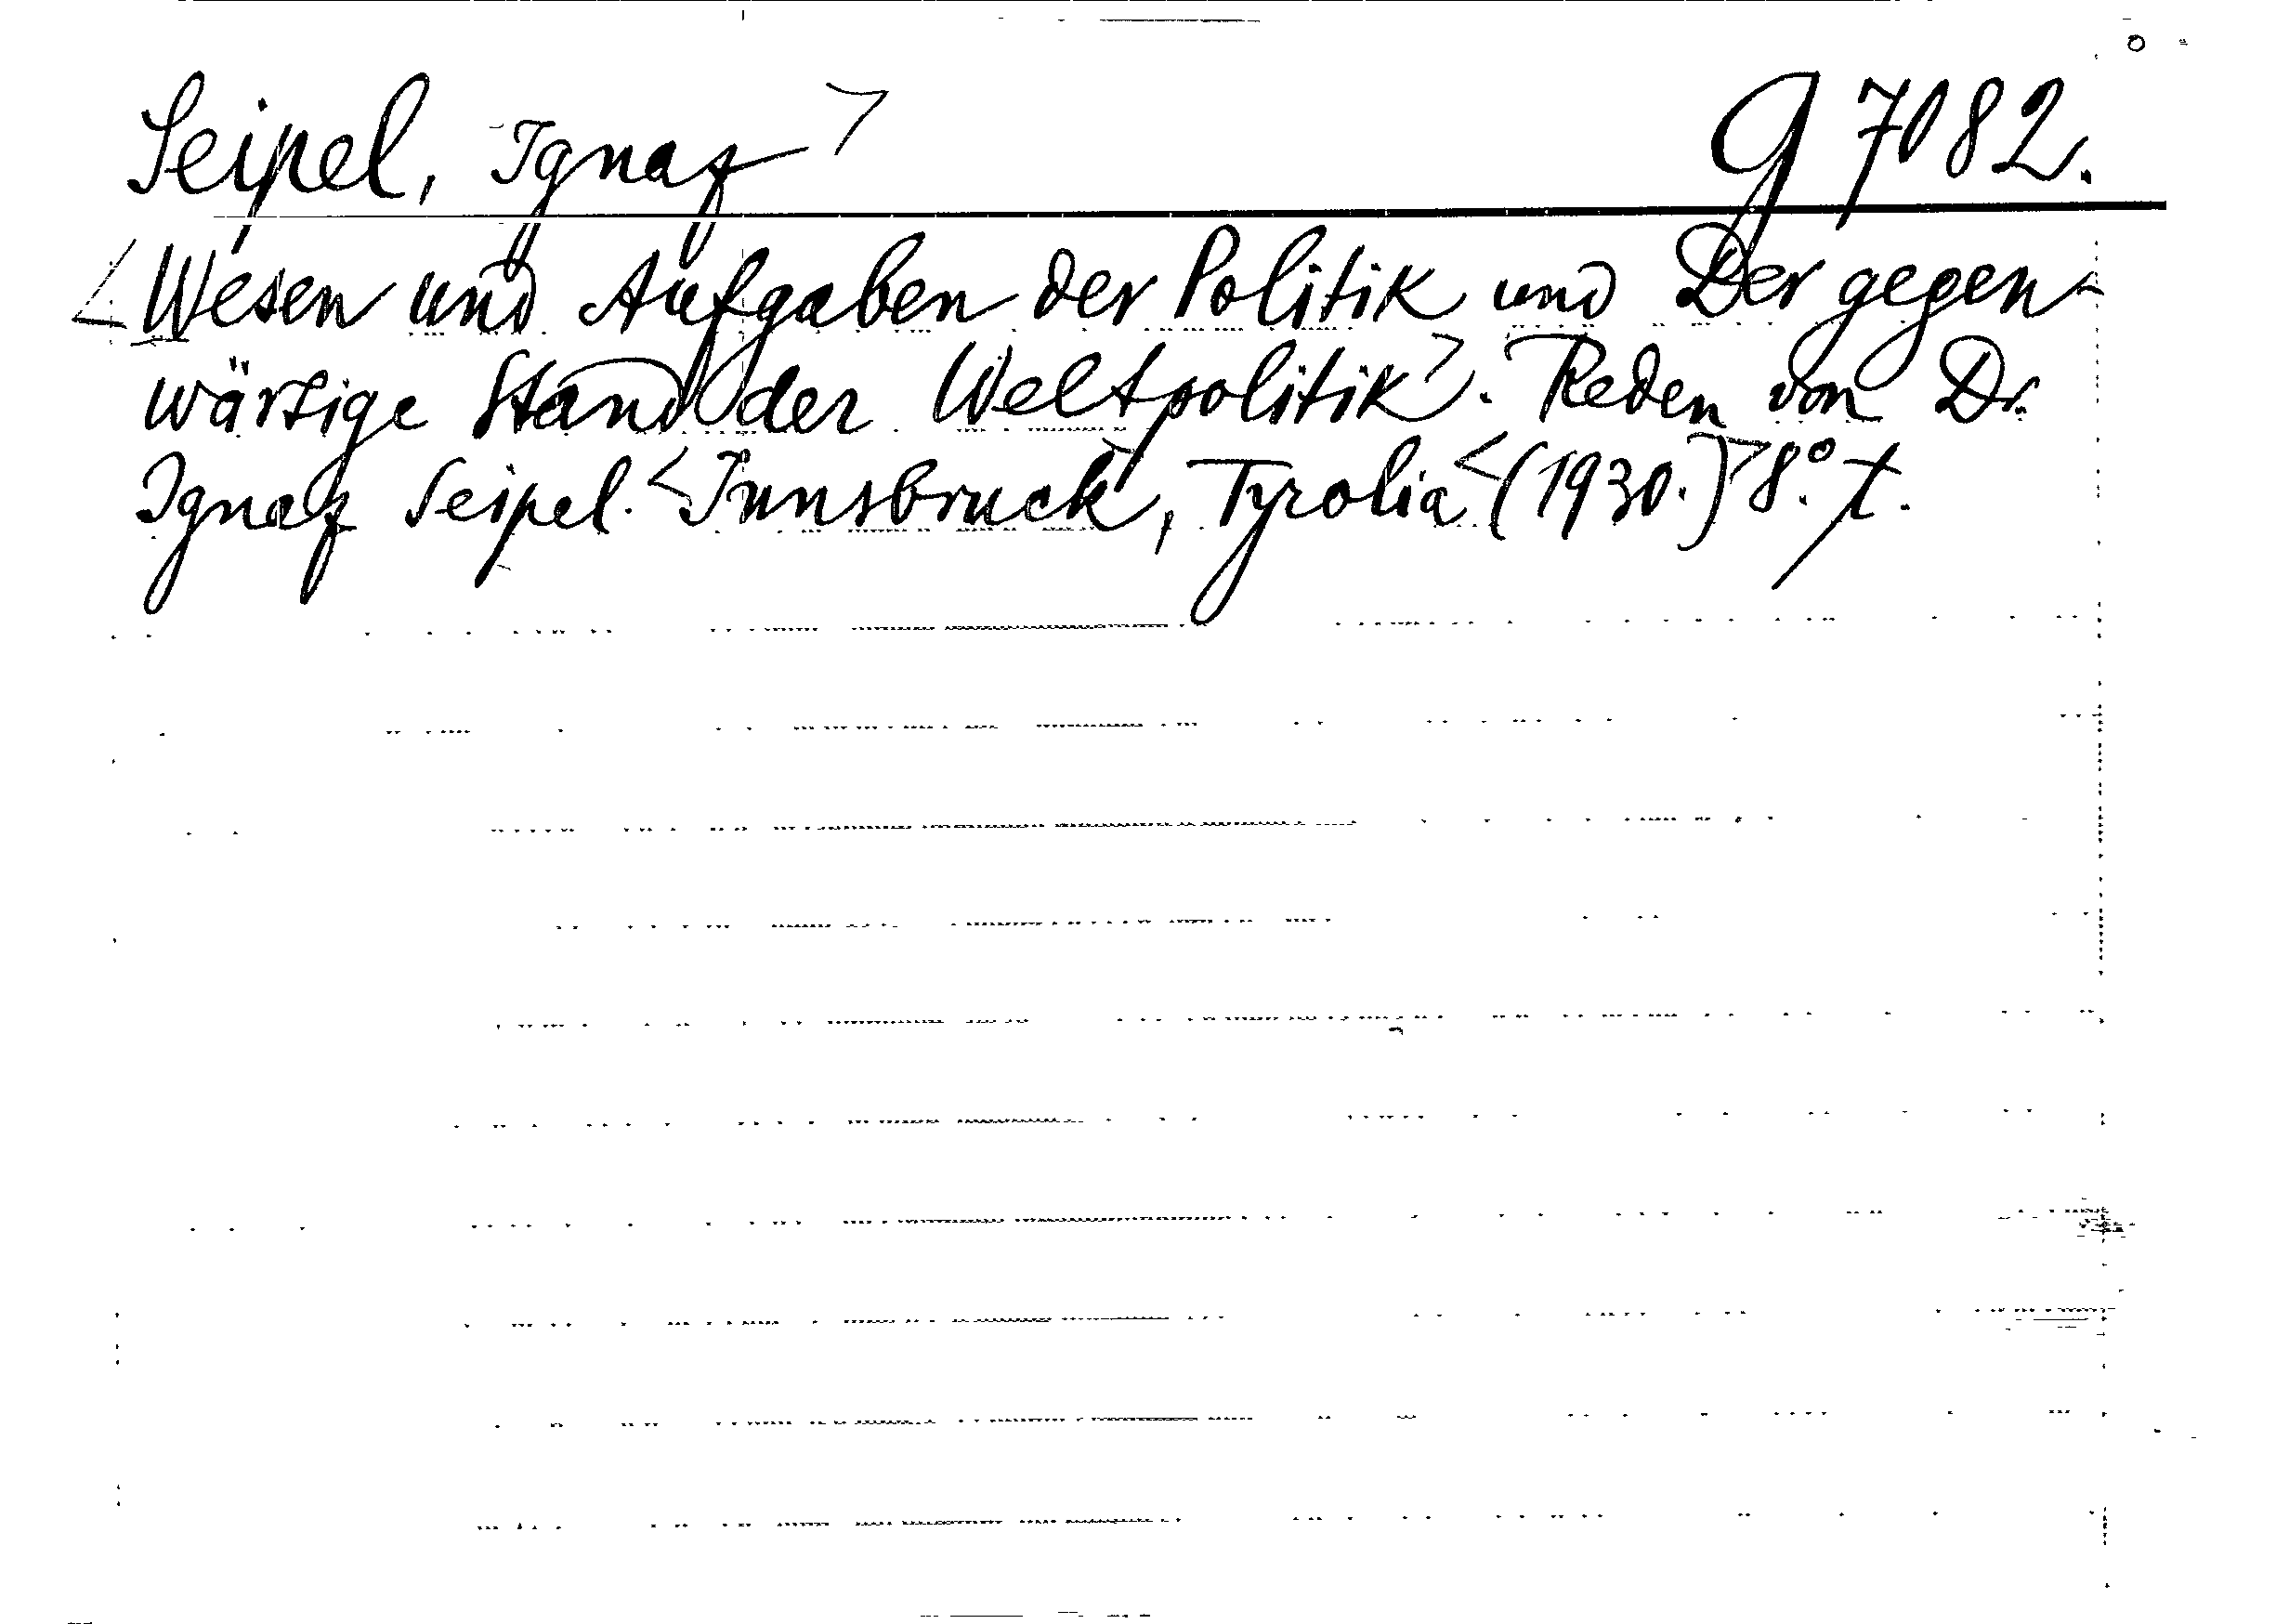 Seipel, Ignaz> G 7082.
<Wesen und Aufgaben der Politik und Der gegen-
wärtige Stand der Weltpolitik>. Reden von Dr.
Ignaz Seipel. <Innsbruck, Tyrolia <(1930.)> 8°. t.